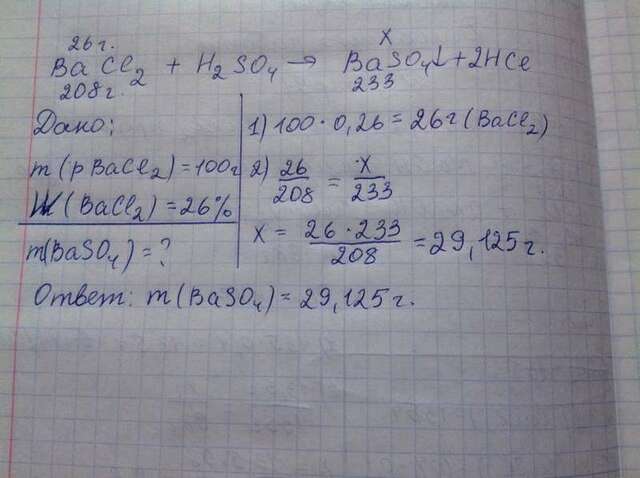 26г. x
BaCl2 + H2SO4 → BaSO4↓ + 2HCl
208г. 233
Дано:
m(р BaCl2) = 100г
W(BaCl2) = 26%
m(BaSO4) = ?
1) 100 · 0,26 = 26г (BaCl2)
2) 26/208 = x/233
x = 26 · 233/208 = 29,125г.
Ответ: m(BaSO4) = 29,125г.